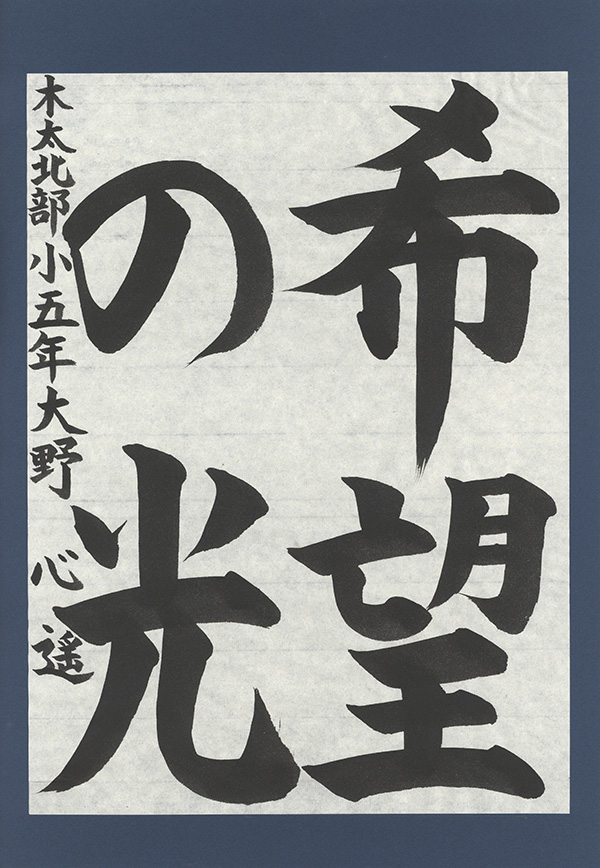 希望
の光
木太北部小五年大野心遥